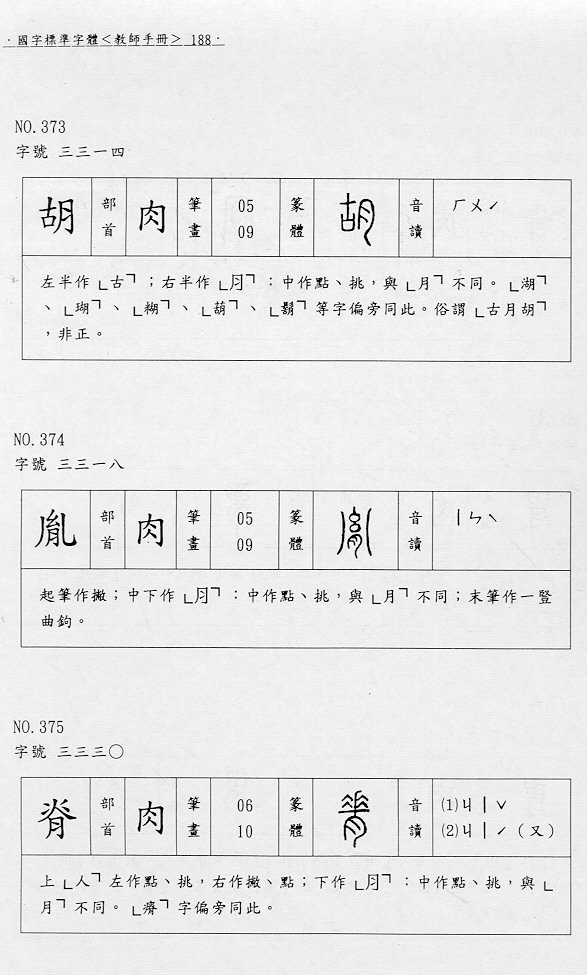 ·國字標準字體<教師手冊> 188·
NO.373
字號 三三一四
胡 部首 肉 筆畫 05 09 篆體 胡 音讀 ㄏㄨˊ
左半作「古」；右半作「⺼」：中作點、挑，與「月」不同。「湖」
、「瑚」、「糊」、「葫」、「鬍」等字偏旁同此。俗謂「古月胡」
，非正。
NO.374
字號 三三一八
胤 部首 肉 筆畫 05 09 篆體 胤 音讀 ㄧㄣˋ
起筆作撇；中下作「⺼」：中作點、挑，與「月」不同；末筆作一豎
曲鉤。
NO.375
字號 三三三〇
脊 部首 肉 筆畫 06 10 篆體 脊 音讀 ⑴ㄐㄧˇ ⑵ㄐㄧˊ（又）
上「人」左作點、挑，右作撇、點；下作「⺼」：中作點、挑，與「
月」不同。「瘠」字偏旁同此。